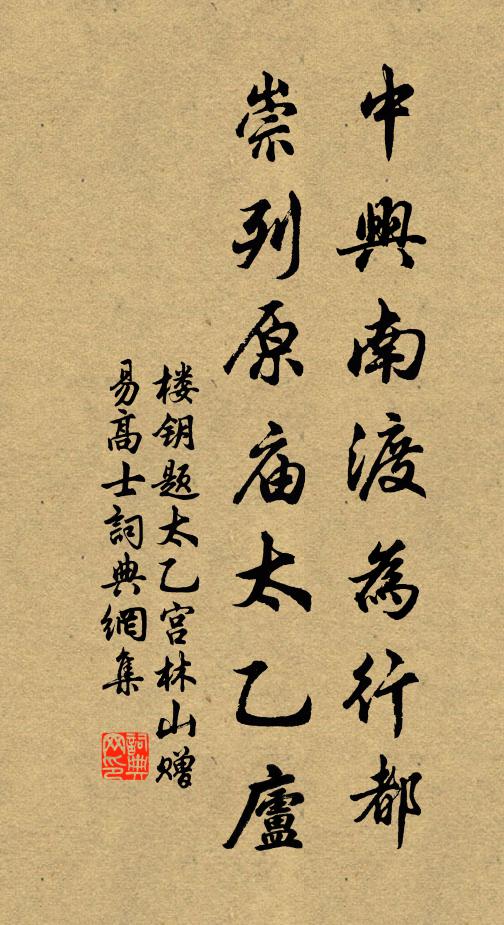 中興南渡為行都
崇列原庙太乙廬
楼钥题太乙宫林山赠
易高士詞典網集
詞典
网印